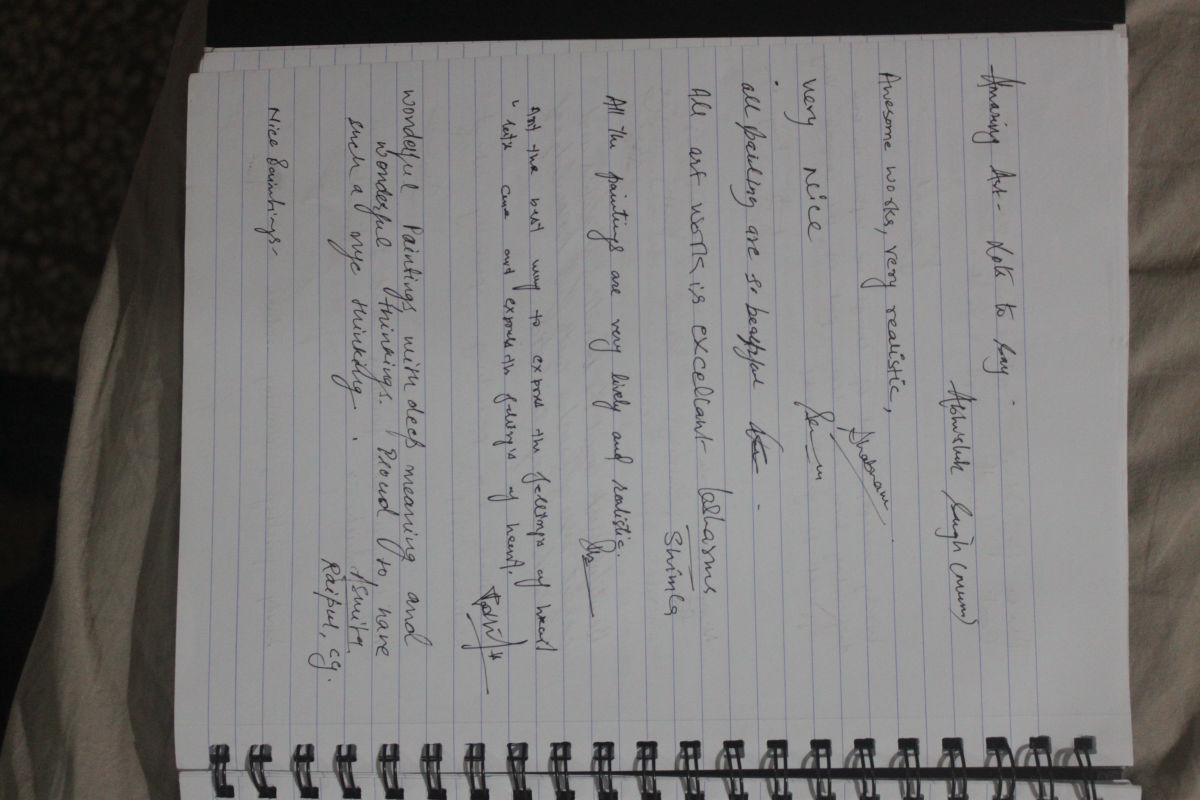 Amazing Art - Lots to say.
Abhishek Singh
Awesome works, very realistic,
very Nice
all painting are so beautiful
All art work is excellant
Shimla
All the paintings are very lively and realistic.
Art the best way to express the fellings of heart
lets come and express the fellings of heart.
wonderful Paintings with deep meaning and
wonderful thinking. Proud to have
such a nyc thinking.
Asmita
Raipur, cg.
Nice Paintings-